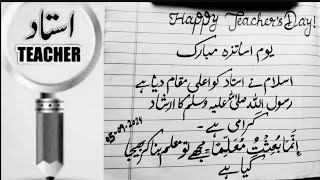 استاد
TEACHER
Happy Teacher's Day!
یوم اساتذہ مبارک
اسلام نے استاد کو اعلی مقام دیا ہے
رسول اللہ صلی اللہ علیہ وسلم کا ارشاد
گرامی ہے۔
05-09-2024
إنَّمَا بُعِثْتُ مُعَلِّمًا = مجھے تو معلم بنا کر بھیجا
گیا ہے